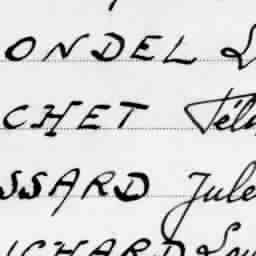 ONDEL
CHET Féli
SSARD Jule
ICHARD Lou